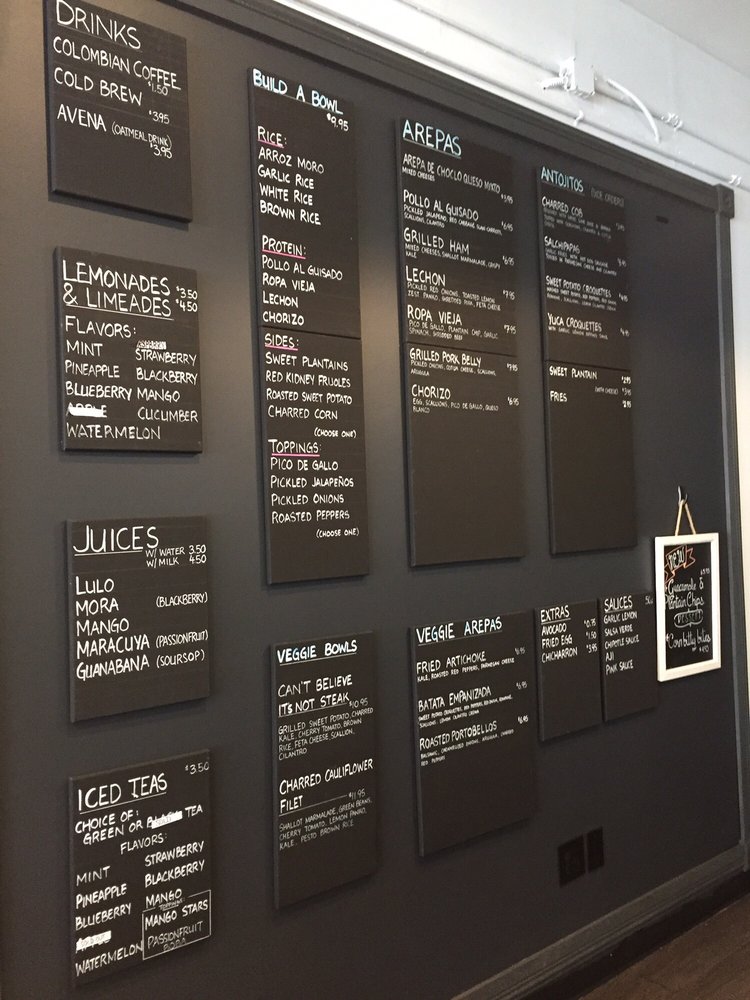 DRINKS
COLOMBIAN COFFEE
$1.50
COLD BREW
$3.95
AVENA (OATMEAL DRINK)
$3.95
LEMONADES $3.50
& LIMEADES $4.50
FLAVORS:
MINT STRAWBERRY
PINEAPPLE BLACKBERRY
BLUEBERRY MANGO
CUCUMBER
WATERMELON
JUICES
W/ WATER 3.50
W/ MILK 4.50
LULO
MORA (BLACKBERRY)
MANGO
MARACUYA (PASSIONFRUIT)
GUANABANA (SOURSOP)
ICED TEAS $3.50
CHOICE OF:
GREEN OR TEA
FLAVORS:
MINT STRAWBERRY
PINEAPPLE BLACKBERRY
BLUEBERRY MANGO
WATERMELON
TOPPINGS:
MANGO STARS
PASSIONFRUIT
BUILD A BOWL
$9.95
RICE:
ARROZ MORO
GARLIC RICE
WHITE RICE
BROWN RICE
PROTEIN:
POLLO AL GUISADO
ROPA VIEJA
LECHON
CHORIZO
SIDES:
SWEET PLANTAINS
RED KIDNEY FRIJOLES
ROASTED SWEET POTATO
CHARRED CORN
(CHOOSE ONE)
TOPPINGS:
PICO DE GALLO
PICKLED JALAPEÑOS
PICKLED ONIONS
ROASTED PEPPERS
(CHOOSE ONE)
VEGGIE BOWLS
CAN'T BELIEVE
IT'S NOT STEAK $10.95
GRILLED SWEET POTATO, CHARRED
KALE, CHERRY TOMATO, BROWN
RICE, FETA CHEESE, SCALLION,
CILANTRO
CHARRED CAULIFLOWER
FILET $11.95
SHALLOT MARMALADE, GREEN BEANS,
CHERRY TOMATO, LEMON PANKO,
KALE, PESTO BROWN RICE
AREPAS
AREPA DE CHOCLO QUESO MIXTO
MIXED CHEESES $5.95
POLLO AL GUISADO $6.95
SCALLIONS, CILANTRO
GRILLED HAM $6.95
MIXED CHEESES, SHALLOT MARMALADE, CRISPY
KALE
LECHON $7.95
PICKLED RED ONIONS, TOASTED LEMON
ZEST PANKO, SHREDDED PORK, FETA CHEESE
ROPA VIEJA $7.95
PICO DE GALLO, PLANTAIN CHIP, GARLIC
SPINACH, SHREDDED BEEF
GRILLED PORK BELLY $7.95
PICKLED ONIONS, COTIJA CHEESE, SCALLIONS,
ARUGULA
CHORIZO $6.95
EGG, SCALLIONS, PICO DE GALLO, QUESO
BLANCO
VEGGIE AREPAS
FRIED ARTICHOKE $6.95
KALE, ROASTED RED PEPPERS, PARMESAN CHEESE
BATATA EMPANIZADA $6.95
ROASTED PORTOBELLOS $6.95
BALSAMIC, CARAMELIZED ONIONS, ARUGULA, CHARRED
RED PEPPERS
ANTOJITOS (SIDE ORDERS)
CHARRED COB
SALCHIPAPAS
SWEET POTATO CROQUETTES
YUCA CROQUETTES
SWEET PLANTAIN $2.95
(WITH CHEESE) $3.95
FRIES $2.95
EXTRAS
AVOCADO $0.75
FRIED EGG $1.50
CHICHARRON $3.95
SAUCES 50¢
GARLIC LEMON
SALSA VERDE
CHIPOTLE SAUCE
AJI
PINK SAUCE
NEW
Guacamole &
Plantain Chips